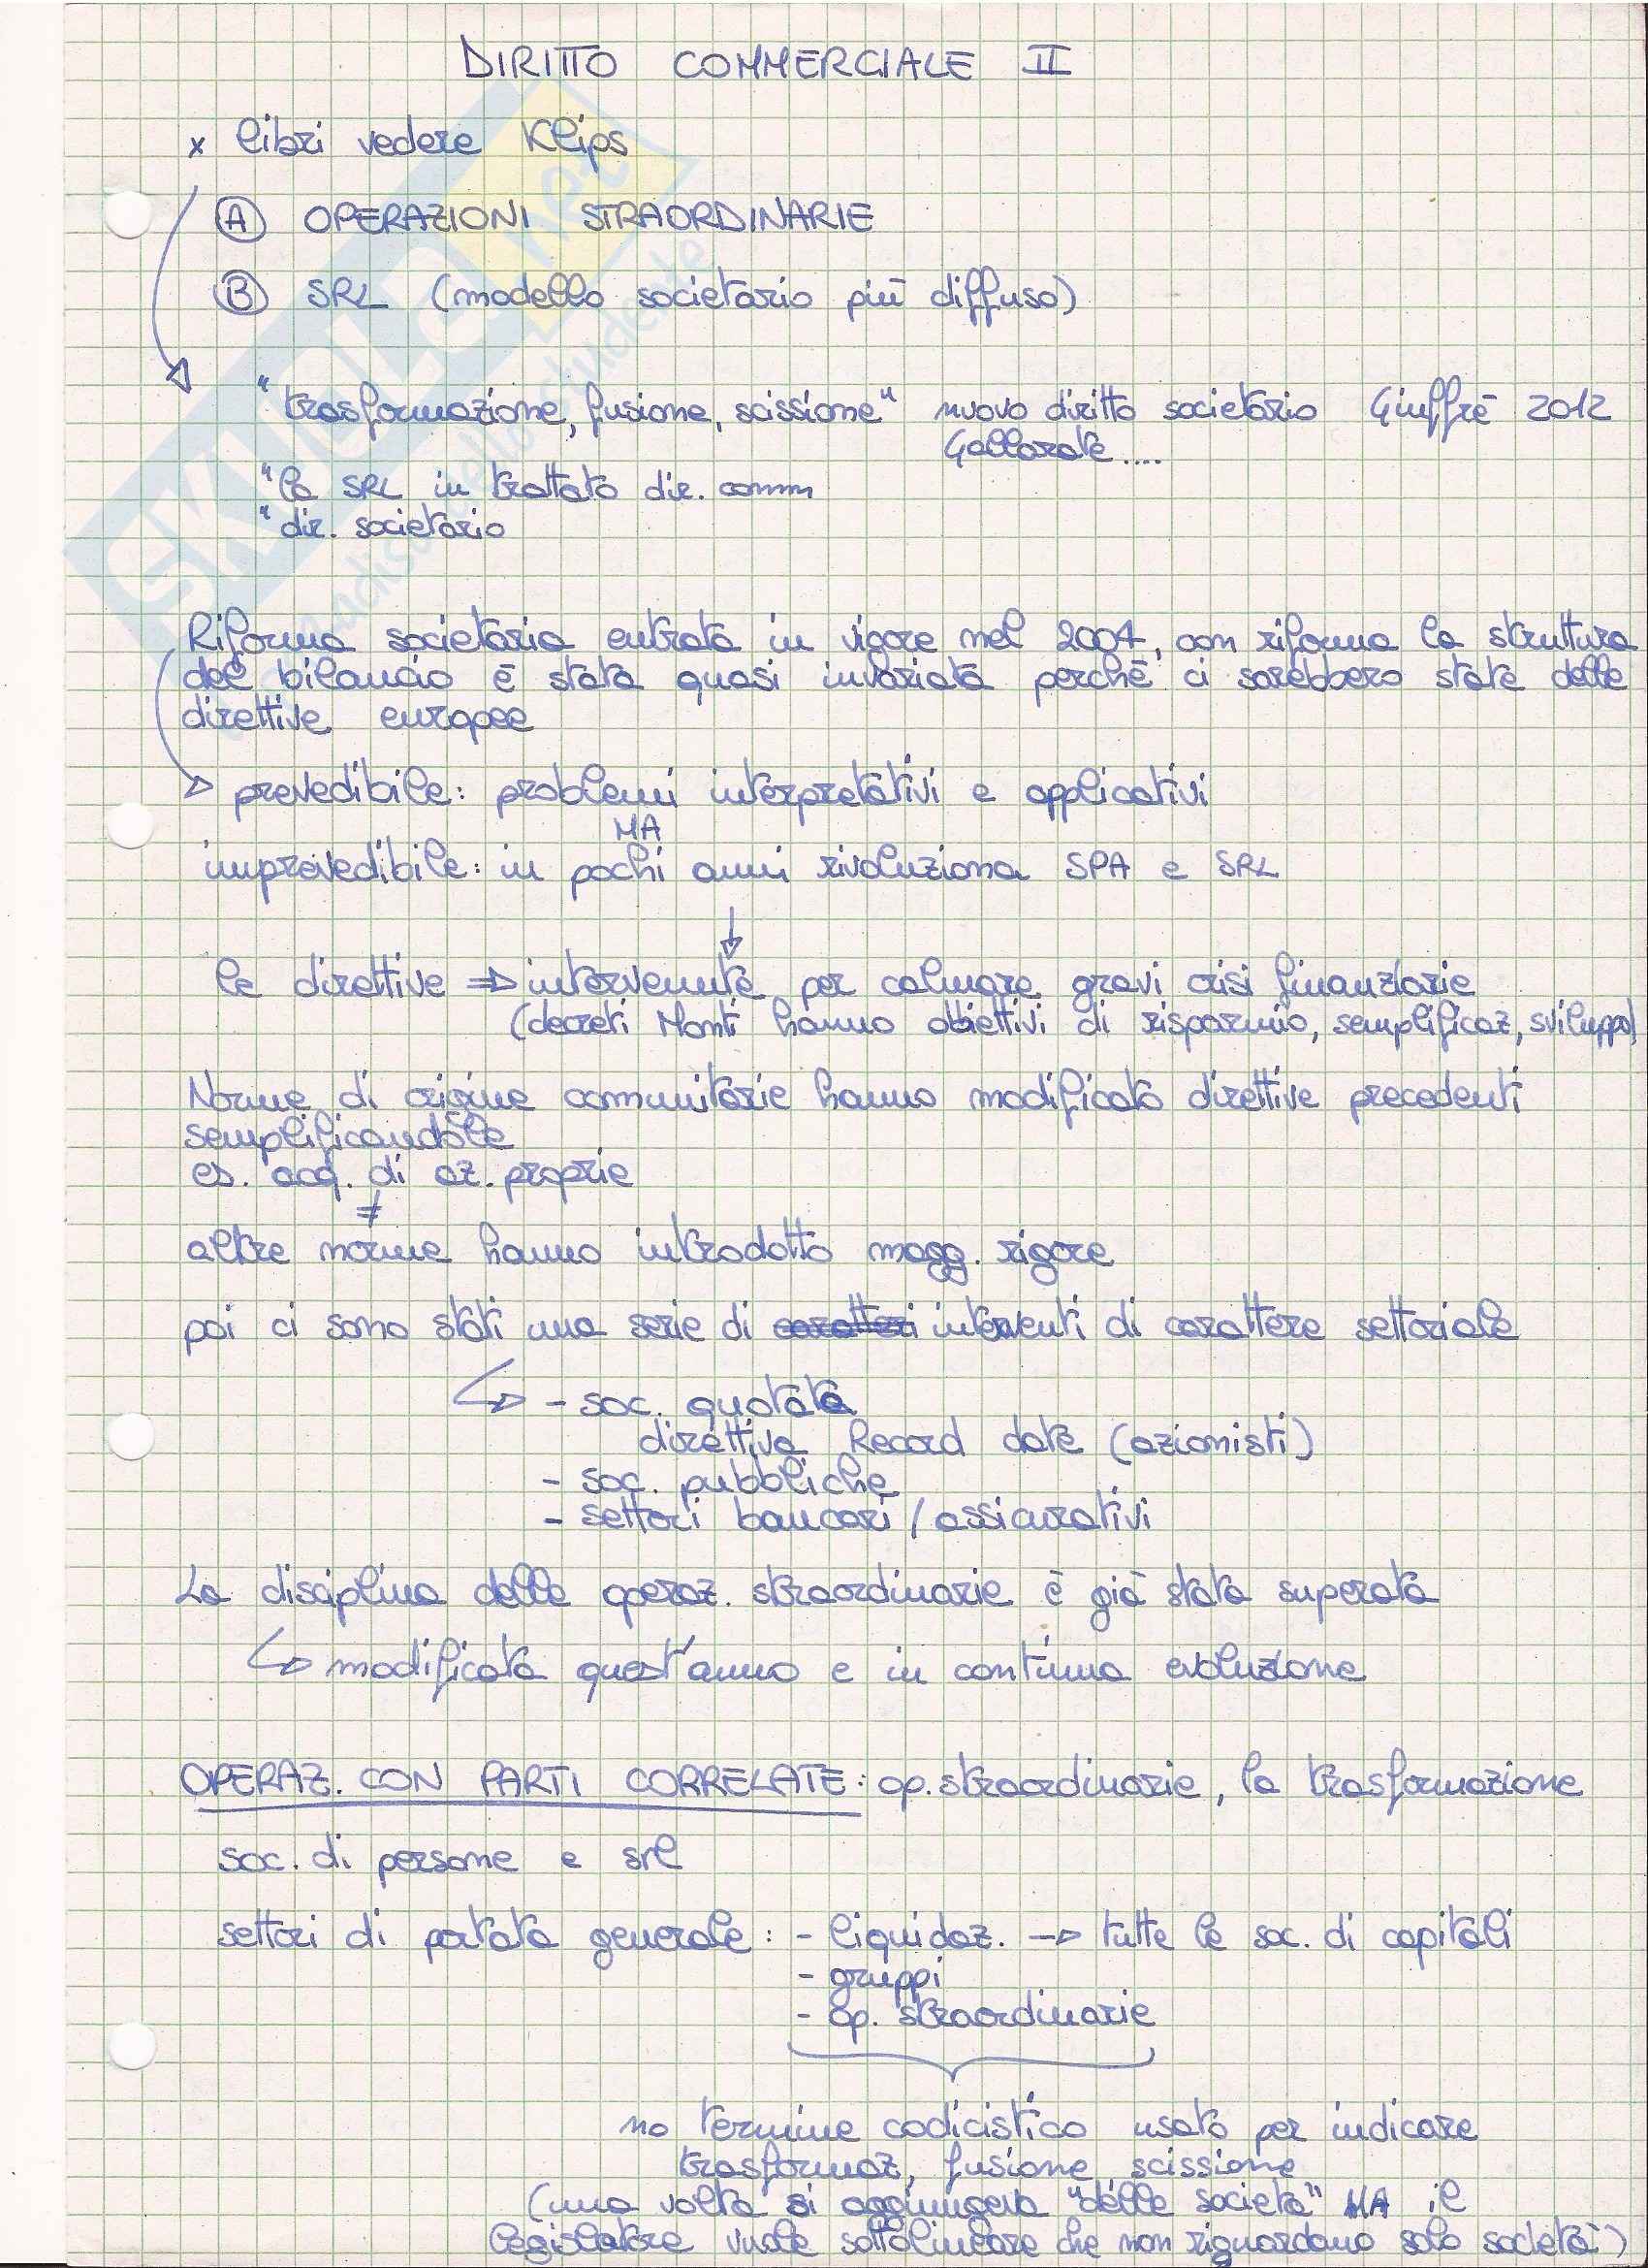 DIRITTO COMMERCIALE II
x libri vedere Klips
A OPERAZIONI STRAORDINARIE
B SRL (modello societario più diffuso)
"trasformazione, fusione, scissione" nuovo diritto societario Giuffrè 2012
Gallarate....
"la SRL in trattato dir. comm
"dir. societario
Riforma societaria entrata in vigore nel 2004, con riforma la struttura
del bilancio è stata quasi invariata perchè ci sarebbero state delle
direttive europee
prevedibile: problemi interpretativi e applicativi
MA
imprevedibile: in pochi anni rivoluziona SPA e SRL
le direttive => intervenute per calmare gravi crisi finanziarie
(decreti Monti hanno obiettivi di risparmio, semplificaz, sviluppo)
Norme di origine comunitarie hanno modificato direttive precedenti
semplificandole
es. acq. di az. proprie
≠
altre norme hanno introdotto magg. rigore
poi ci sono stati una serie di caratteri interventi di carattere settoriale
- soc. quotate
direttiva Record date (azionisti)
- soc. pubbliche
- settori bancari / assicurativi
La disciplina delle operaz. straordinarie è già stata superata
modificata quest'anno e in continua evoluzione
OPERAZ. CON PARTI CORRELATE: op. straordinarie, la trasformazione
soc. di persone e srl
settori di portata generale: - liquidaz. -> tutte le soc. di capitali
- gruppi
- op. straordinarie
no termine codicistico usato per indicare
trasformaz, fusione, scissione
(una volta si aggiungeva "delle società" MA il
legislatore vuole sottolineare che non riguardano solo società)
SKUOLA.net